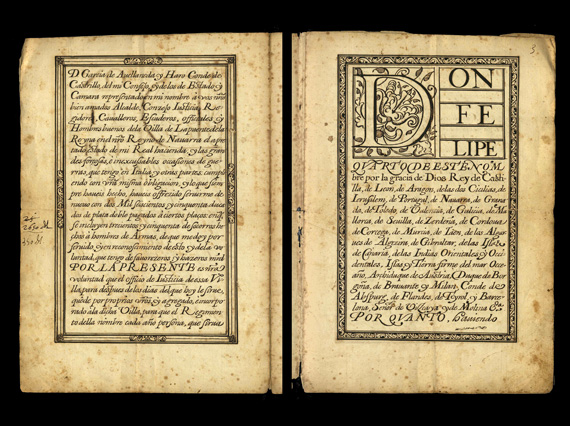 D. Garcia de Avellaneda y Haro Conde de
Castrillo, del mi Consejo, y de los de Estado y
Camara representado en mi nombre a vos mis
bien amados Alcalde, Consejo Justicia, Re-
gidores, Cavalleros, Escuderos, officiales y
Hombres buenos dela Villa de La puente dela
Reyna en el mio Reyno de Navarra el a pe-
tado estado de mi Real hacienda, y las gran
des forzosas, è inexcusables ocasiones de gue-
rras, que tengo en Italia, y otras partes, cumpli-
endo con vr̃a misma obligacion, y lo que siem
pre haveis hecho, haveis offrecido servirme de
nuevo con dos Mil seiscientos y cinquenta duca
dos de plata doble pagados à ciertos plaços, en q̃
se incluyen trecientos y cinquenta de
hechos à hombres de Armas, de que me doy por
servido, y en reconoscimiento de esto, y de la vo-
luntad, que tengo de favoreceros y hazeros md̃
POR LA PRESENTE es mi
voluntad que el officio de Justicia de essa Vi-
lla, para despues delos dias del que oy le sirve,
quede por proprias vr̃o, y agregado, è incorpo-
rado ala dicha Villa, para que el Regimien-
to della nombre cada año persona, que sirva
3
DON
FE
LIPE
QUARTO DE ESTE NOM
bre por la gracia de Dios Rey de Casti-
lla, de Leon, de Aragon, de las dos Cicilias, de
Ierusalem, de Portugal, de Navarra, de Grana
da, de Toledo, de Valencia, de Galicia, de Ma-
llorca, de Sevilla, de Zerdeña, de Cordova,
de Corcega, de Murcia, de Jaen, de los Algar
ves de Algezira, de Gibraltar, de las Islas
de Canaria, de las Indias Orientales y Oc-
cidentales, Islas y Tierra firme del mar Oce-
ano, Archiduque de Austria, Duque de Bor-
goña, de Bravante y Milan, Conde de
Abspurg, de Flandes, de Tyrol, y Barce-
lona, Señor de Vizcaya y de Molina &c.
POR QUANTO, haviendo